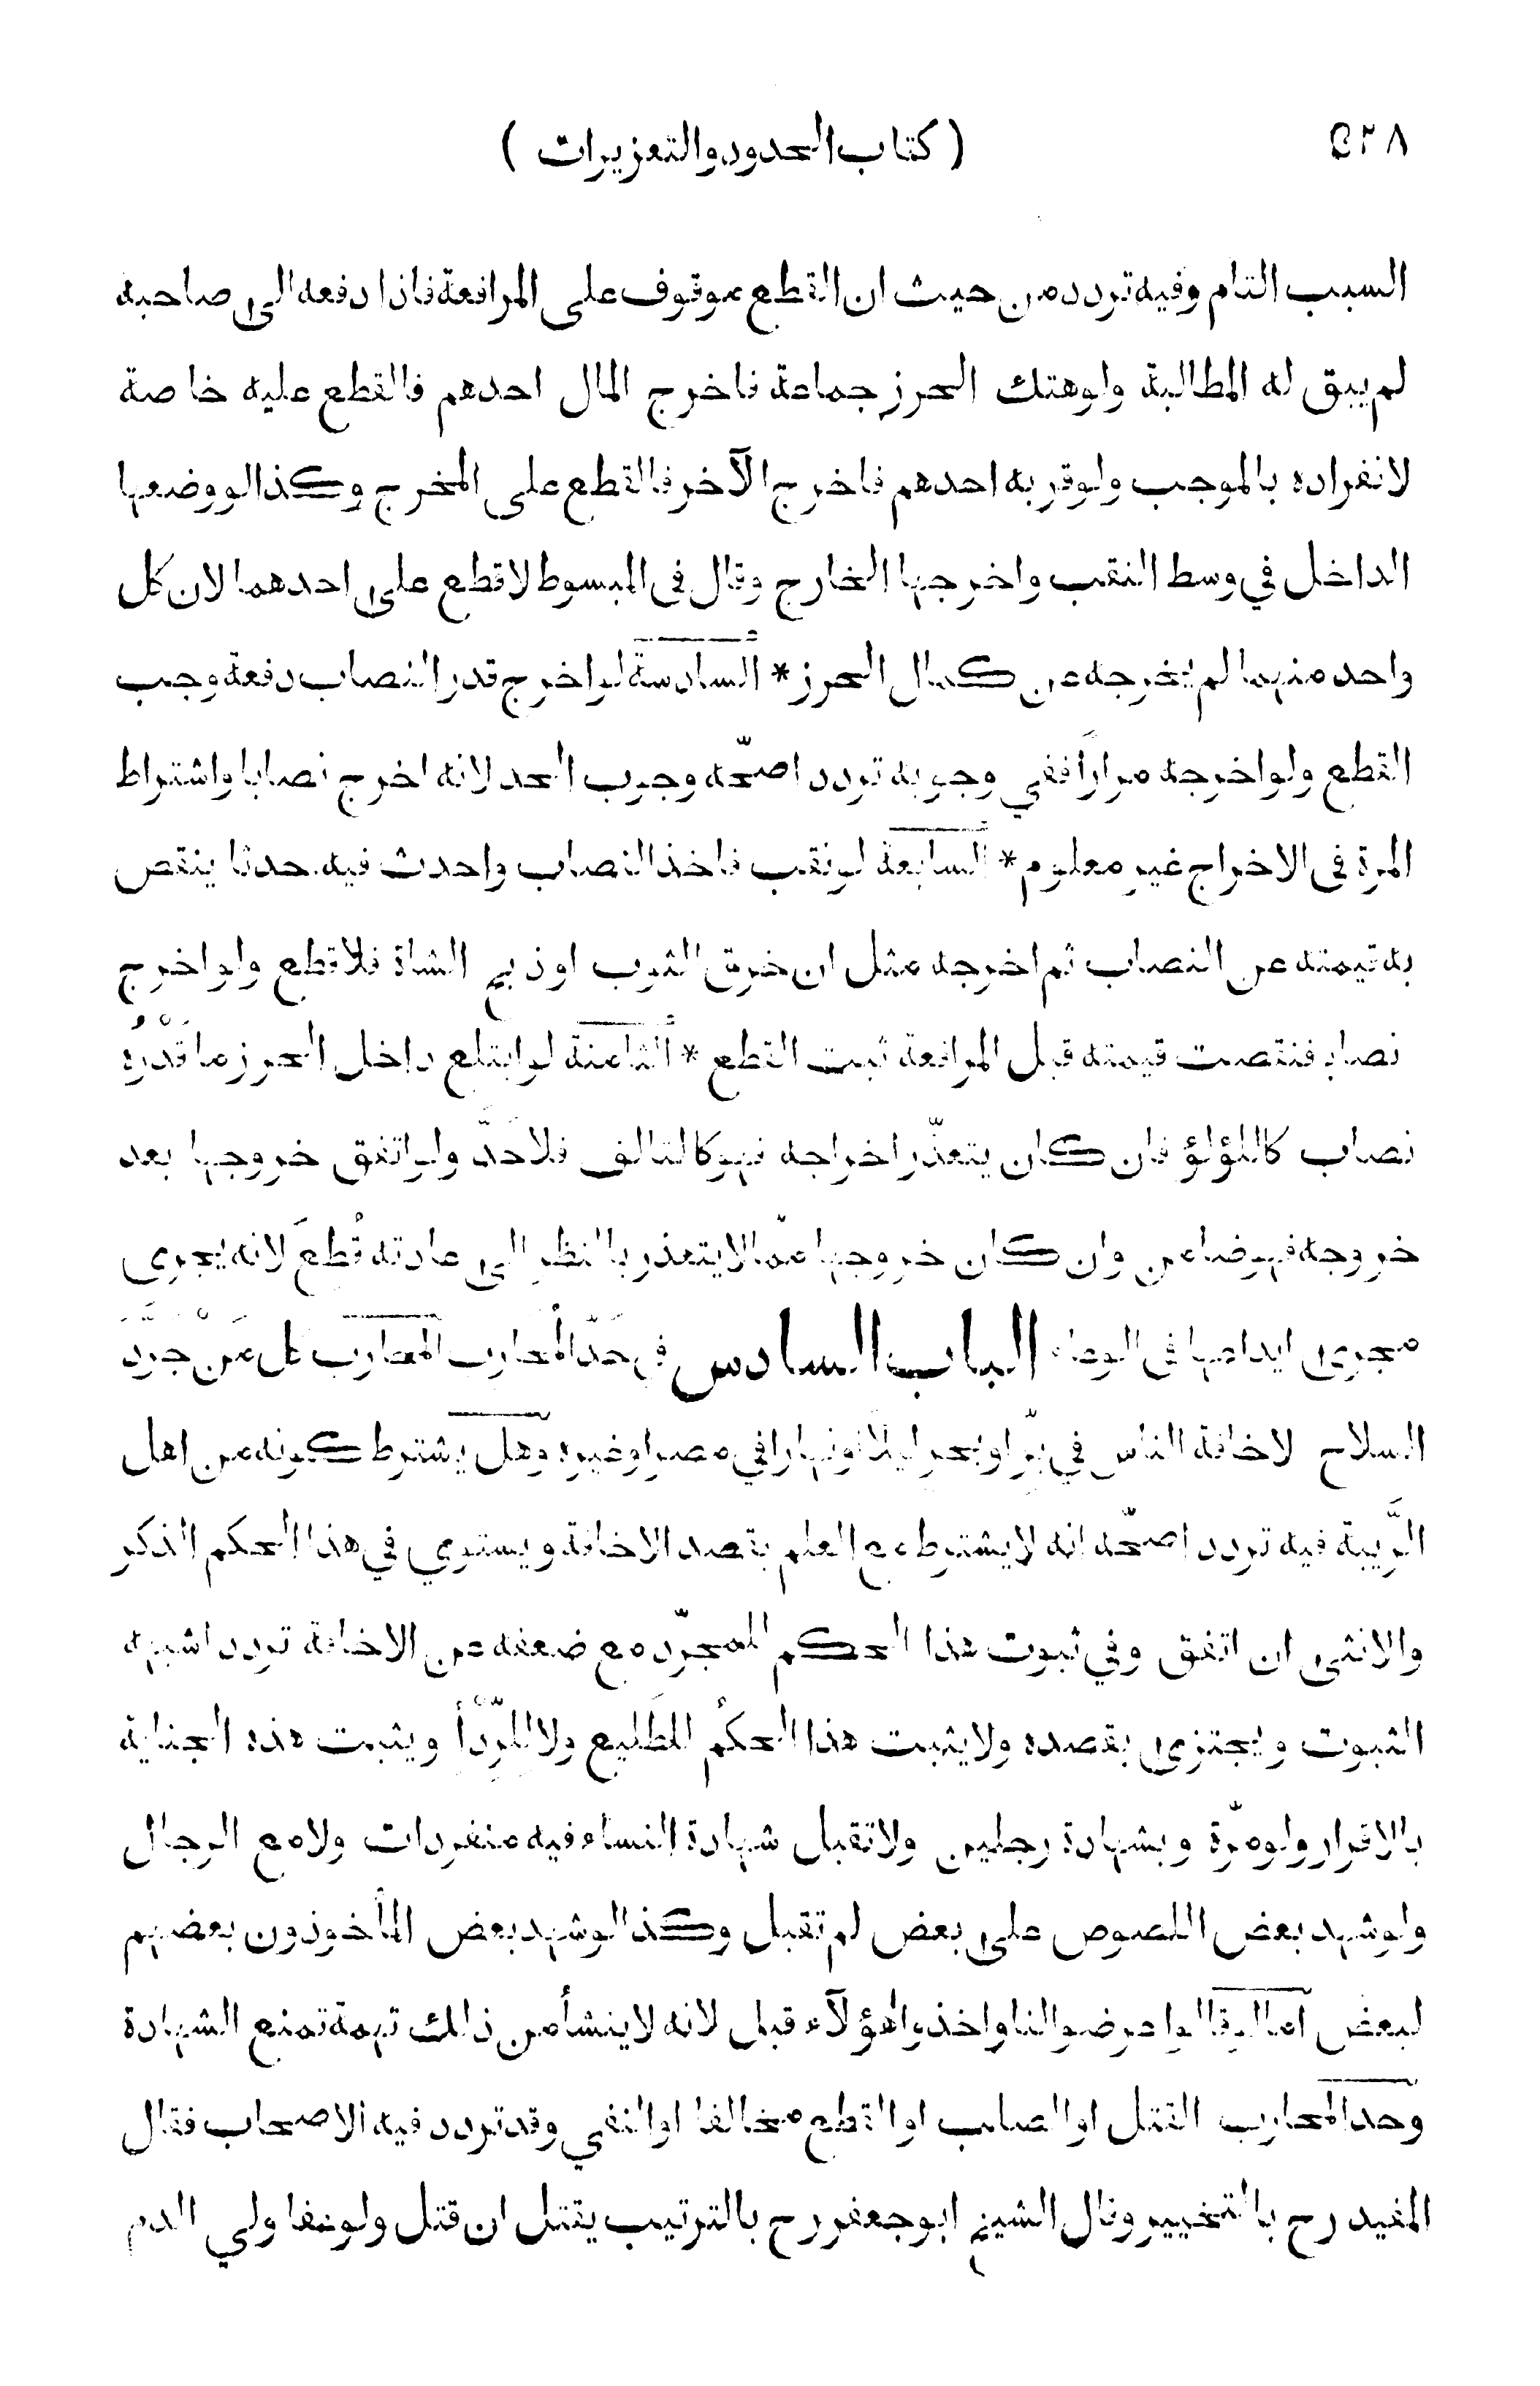 ٥٢٨
( كتاب الحدود والتعزيرات )
السبب التام وفيه تردد من حيث ان القطع موقوف على المرافعة فاذا دفعه الى صاحبه
لم يبق له المطالبة ولو هتك الحرز جماعة فاخرج المال احدهم فالقطع عليه خاصة
لانفراده بالموجب ولو قربه احدهم فاخرج الآخر فالقطع على المخرج وكذا لو وضعها
الداخل في وسط النقب واخرجها الخارج وقال فى المبسوط لا قطع على احدهما لان كل
واحد منهما لم يخرجه عن كمال الحرز * السادسة لو اخرج قدر النصاب دفعة وجب
القطع ولو اخرجه مراراً ففي وجوبه تردد اصحّه وجوب الحد لانه اخرج نصابا واشتراط
المرة فى الاخراج غير معلوم * السابعة لو نقب فاخذ النصاب واحدث فيه حدثا ينقص
به قيمته عن النصاب ثم اخرجه مثل ان خرق الثوب او ذبح الشاة فلا قطع ولو اخرج
نصابا فنقصت قيمته قبل المرافعة ثبت القطع * الثامنة لو ابتلع داخل الحرز ما قَدْرُه
نصاب كاللؤلؤ فان كان يتعذّر اخراجه فهو كالتالف فلا حَدَّ ولو اتفق خروجها بعد
خروجه فهو ضامن وان كان خروجها ممّا لا يتعذر بالنظر الى عادته قُطعَ لانه يجرى
مجرى ايداعها فى الوعاء الباب السادس في حَدّ المُحارب المحارب كل مَنْ جَرَّدَ
السلاح لاخافة الناس في برّ او بحر ليلا او نهارا في مصر او غيره وهل يشترط كونه من اهل
الرَّيبة فيه تردد اصحّه انه لا يشترط مع العلم بقصد الاخافة ويستوي في هذا الحكم الذكر
والانثى ان اتفق وفي ثبوت هذا الحكم للمجرّد مع ضعفه عن الاخافة تردد اشبهه
الثبوت ويجتزى بقصده ولا يثبت هذا الحكم للطَليع ولا للرّدْأ ويثبت هذه الجناية
بالاقرار ولو مرّة وبشهادة رجلين ولا تقبل شهادة النساء فيه منفردات ولا مع الرجال
ولو شهد بعض اللصوص على بعض لم تقبل وكذا لو شهد بعض المأخوذون بعضهم
لبعض اما لو قالوا عرضوا لنا واخذوا هؤلآء قبل لانه لا ينشأ من ذلك تهمة تمنع الشهادة
وحد المحارب القتل او الصلب او القطع مخالفا او النفي وقد تردد فيه الاصحاب فقال
المفيد رح بالتخيير وقال الشيخ ابو جعفر رح بالترتيب يقتل ان قتل ولو عفا ولي الدم